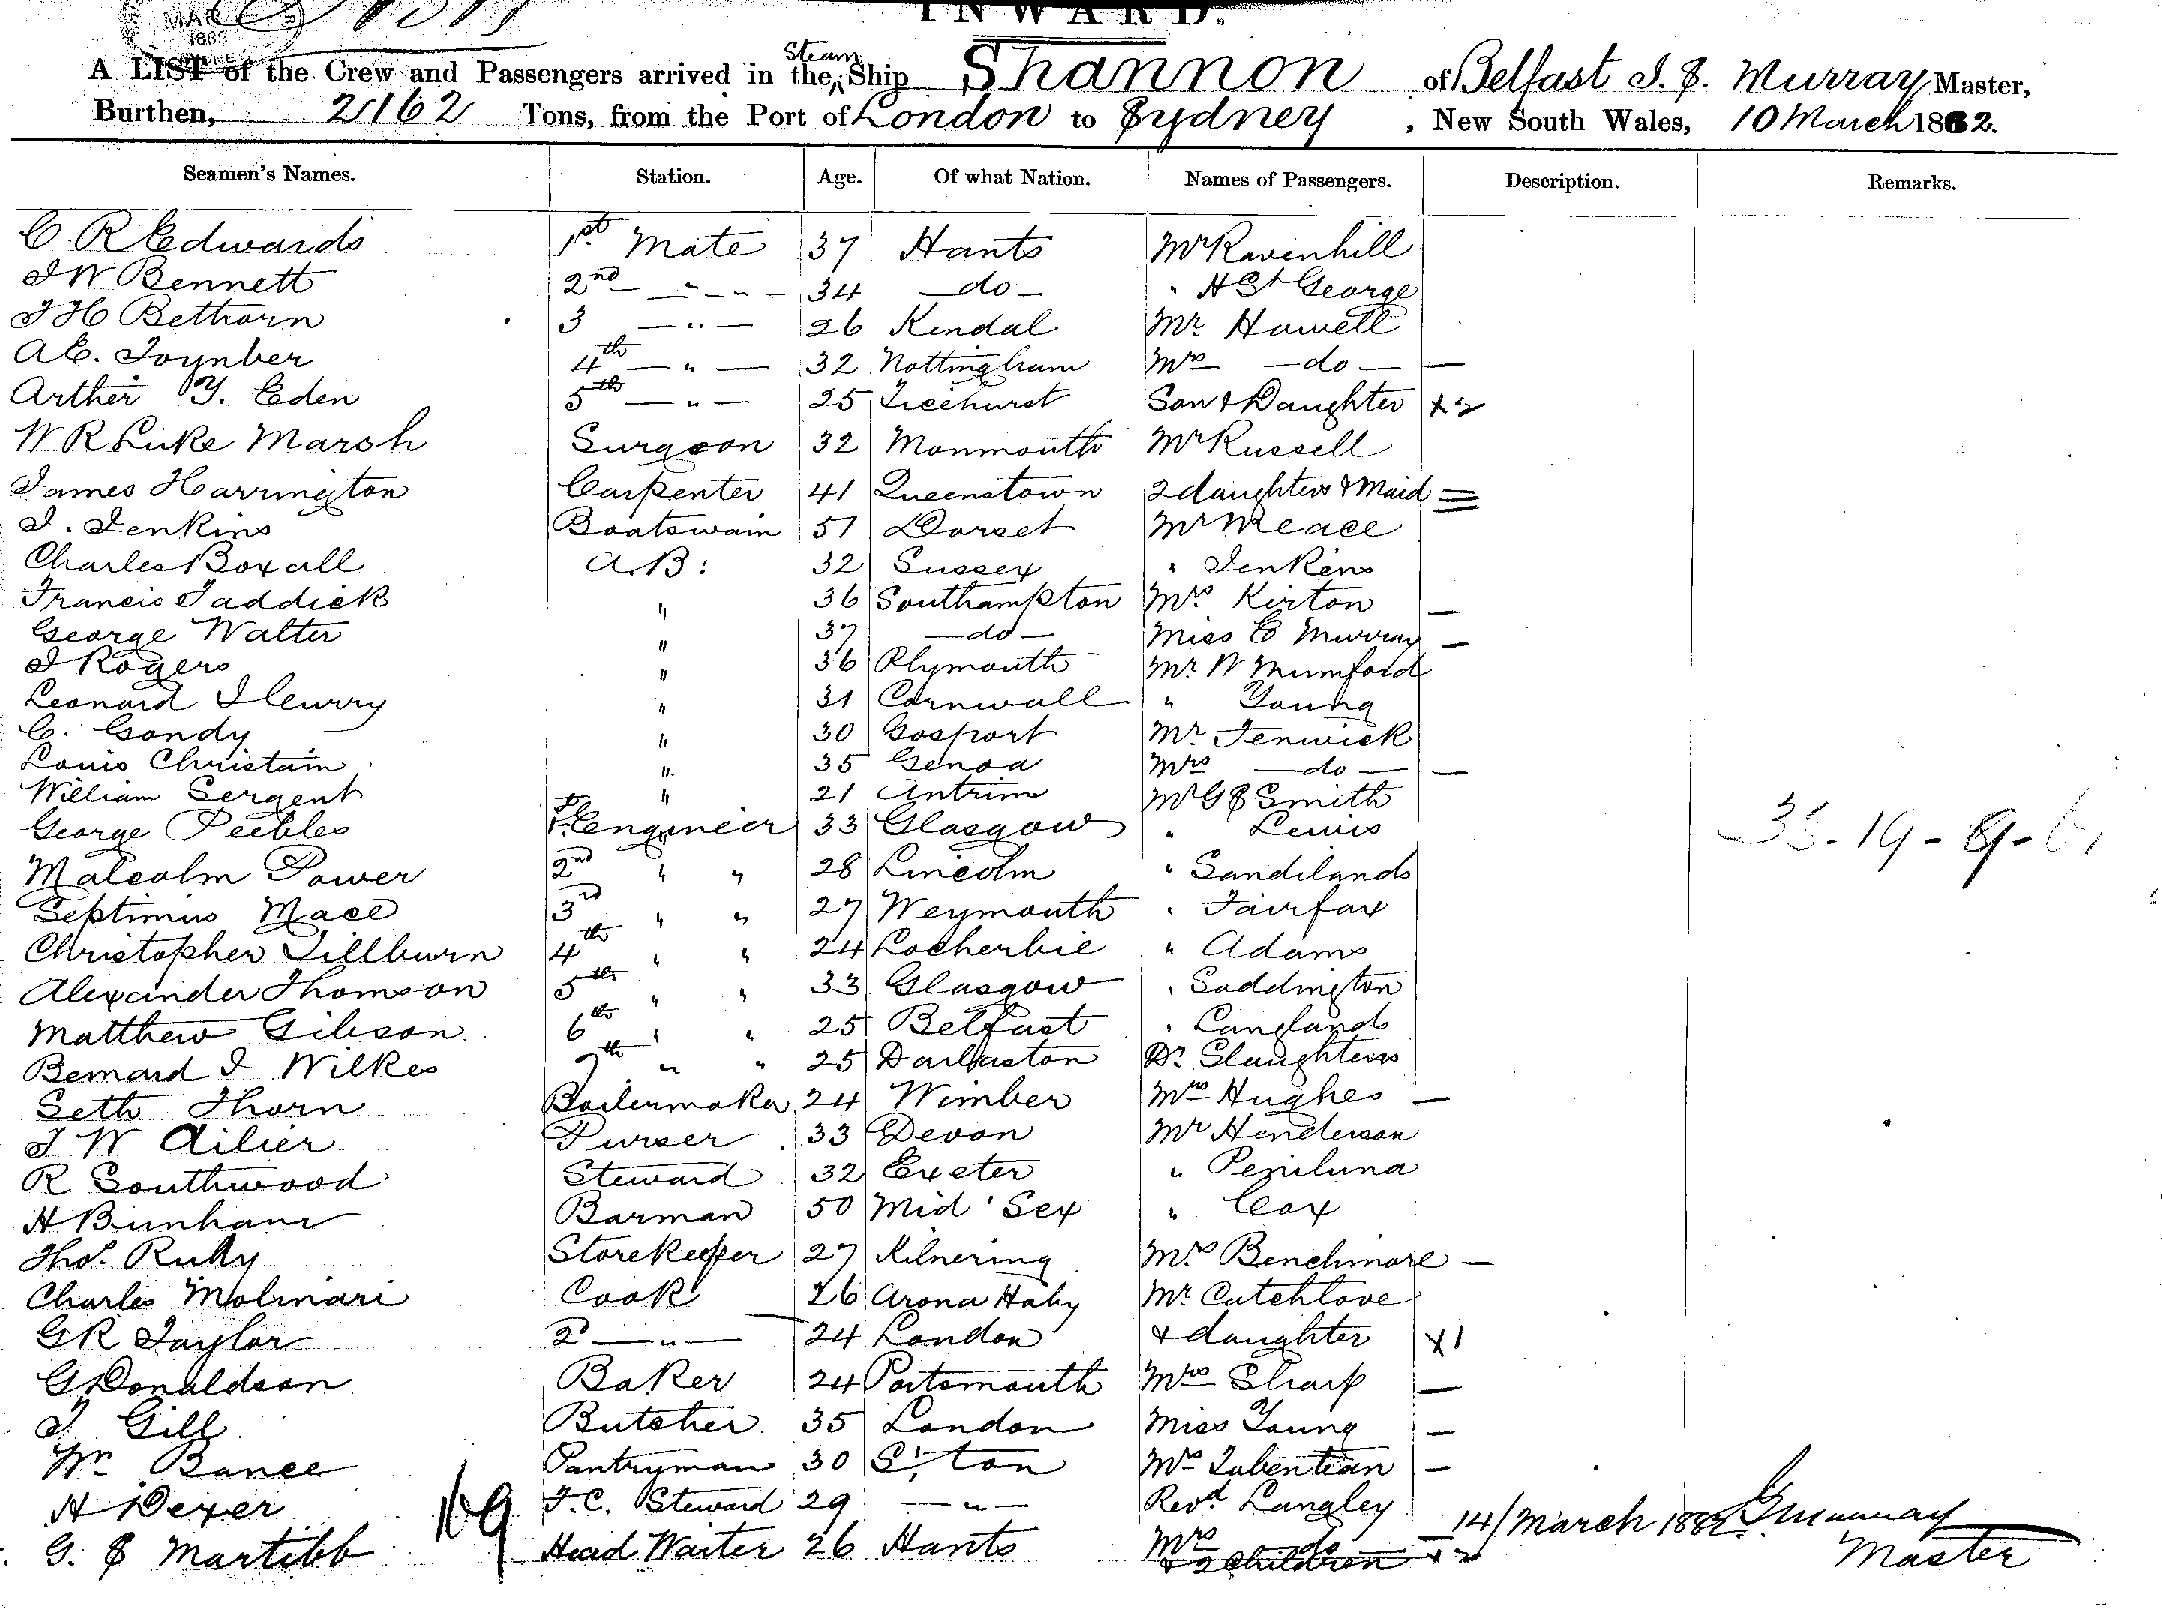 INWARD.
A LIST of the Crew and Passengers arrived in the Steam Ship Shannon of Belfast J. S. Murray Master,
Burthen, 2162 Tons, from the Port of London to Sydney, New South Wales, 10 March 1882.
Seamen's Names. Station. Age. Of what Nation. Names of Passengers. Description. Remarks.
C R Edwards 1st Mate 37 Hants Mr Ravenhill
J W Bennett 2nd — " — " — 34 — do — " H St George
J H Bethorn 3 — " — 26 Kendal Mr. Howell
A E. Joynber 4th — " — 32 Nottingham Mrs — do — —
Arther Y. Eden 5th — " — 25 Ticehurst Son & Daughter x 2
W R Luke Marsh Surgeon 32 Monmouth Mr Russell
James Harrington Carpenter 41 Queenstown 2 daughters & Maid =
J. Jenkins Boatswain 51 Dorset Mr Meace
Charles Boxall A.B: 32 Sussex " Jenkins
Francis Taddick " 36 Southampton Mrs Kirton —
George Walter " 37 — do — Miss C Murray —
J Rogers " 36 Plymouth Mr. W Mumford
Leonard Flenrry " 31 Cornwall " Young
C. Gondy " 30 Gosport Mr. Fenwick
Louis Christain " 35 Genoa Mrs — do — —
William Sergent " 21 Antrim Mr G S Smith
George Peebles F. engineer 33 Glasgow " Lewis
Malcolm Power 2nd " " 28 Lincoln " Sandilands
Septimus Mace 3rd " " 27 Weymouth " Fairfax
Christopher Tillburn 4th " " 24 Locherbie " Adams
Alexander Thomson 5th " " 33 Glasgow " Saddington
Matthew Gibson 6th " " 25 Belfast " Langland
Bernard J Wilkes 7th " " 25 Darlaston Dr. Slaughters
Seth Thorn Boilermaker 24 Wimber Mrs Hughes —
J W Ailier Purser 33 Devon Mr Henderson
R Southwood Steward 32 Exeter " Peniluna
H Bunham Barman 50 Mid Sex " Cox
Thos. Ruby Storekeeper 27 Kilnering Mrs Benchmore —
Charles Molinari Cook 26 Arona Haby Mr Cutchlove
G R Taylor 2 — " — 24 London & daughter x 1
G Donaldson Baker 24 Portsmouth Mrs Sharp —
J Gill Butcher 35 London Miss Young —
Wm Bance Pantryman 30 S'ton Mrs Tubentian —
H Dexer F.C. Steward 29 — " — Revd. Langley
G. S Martibb 169 Head Waiter 26 Hants Mrs do
& 2 Children x 2
14/March 1882 Master